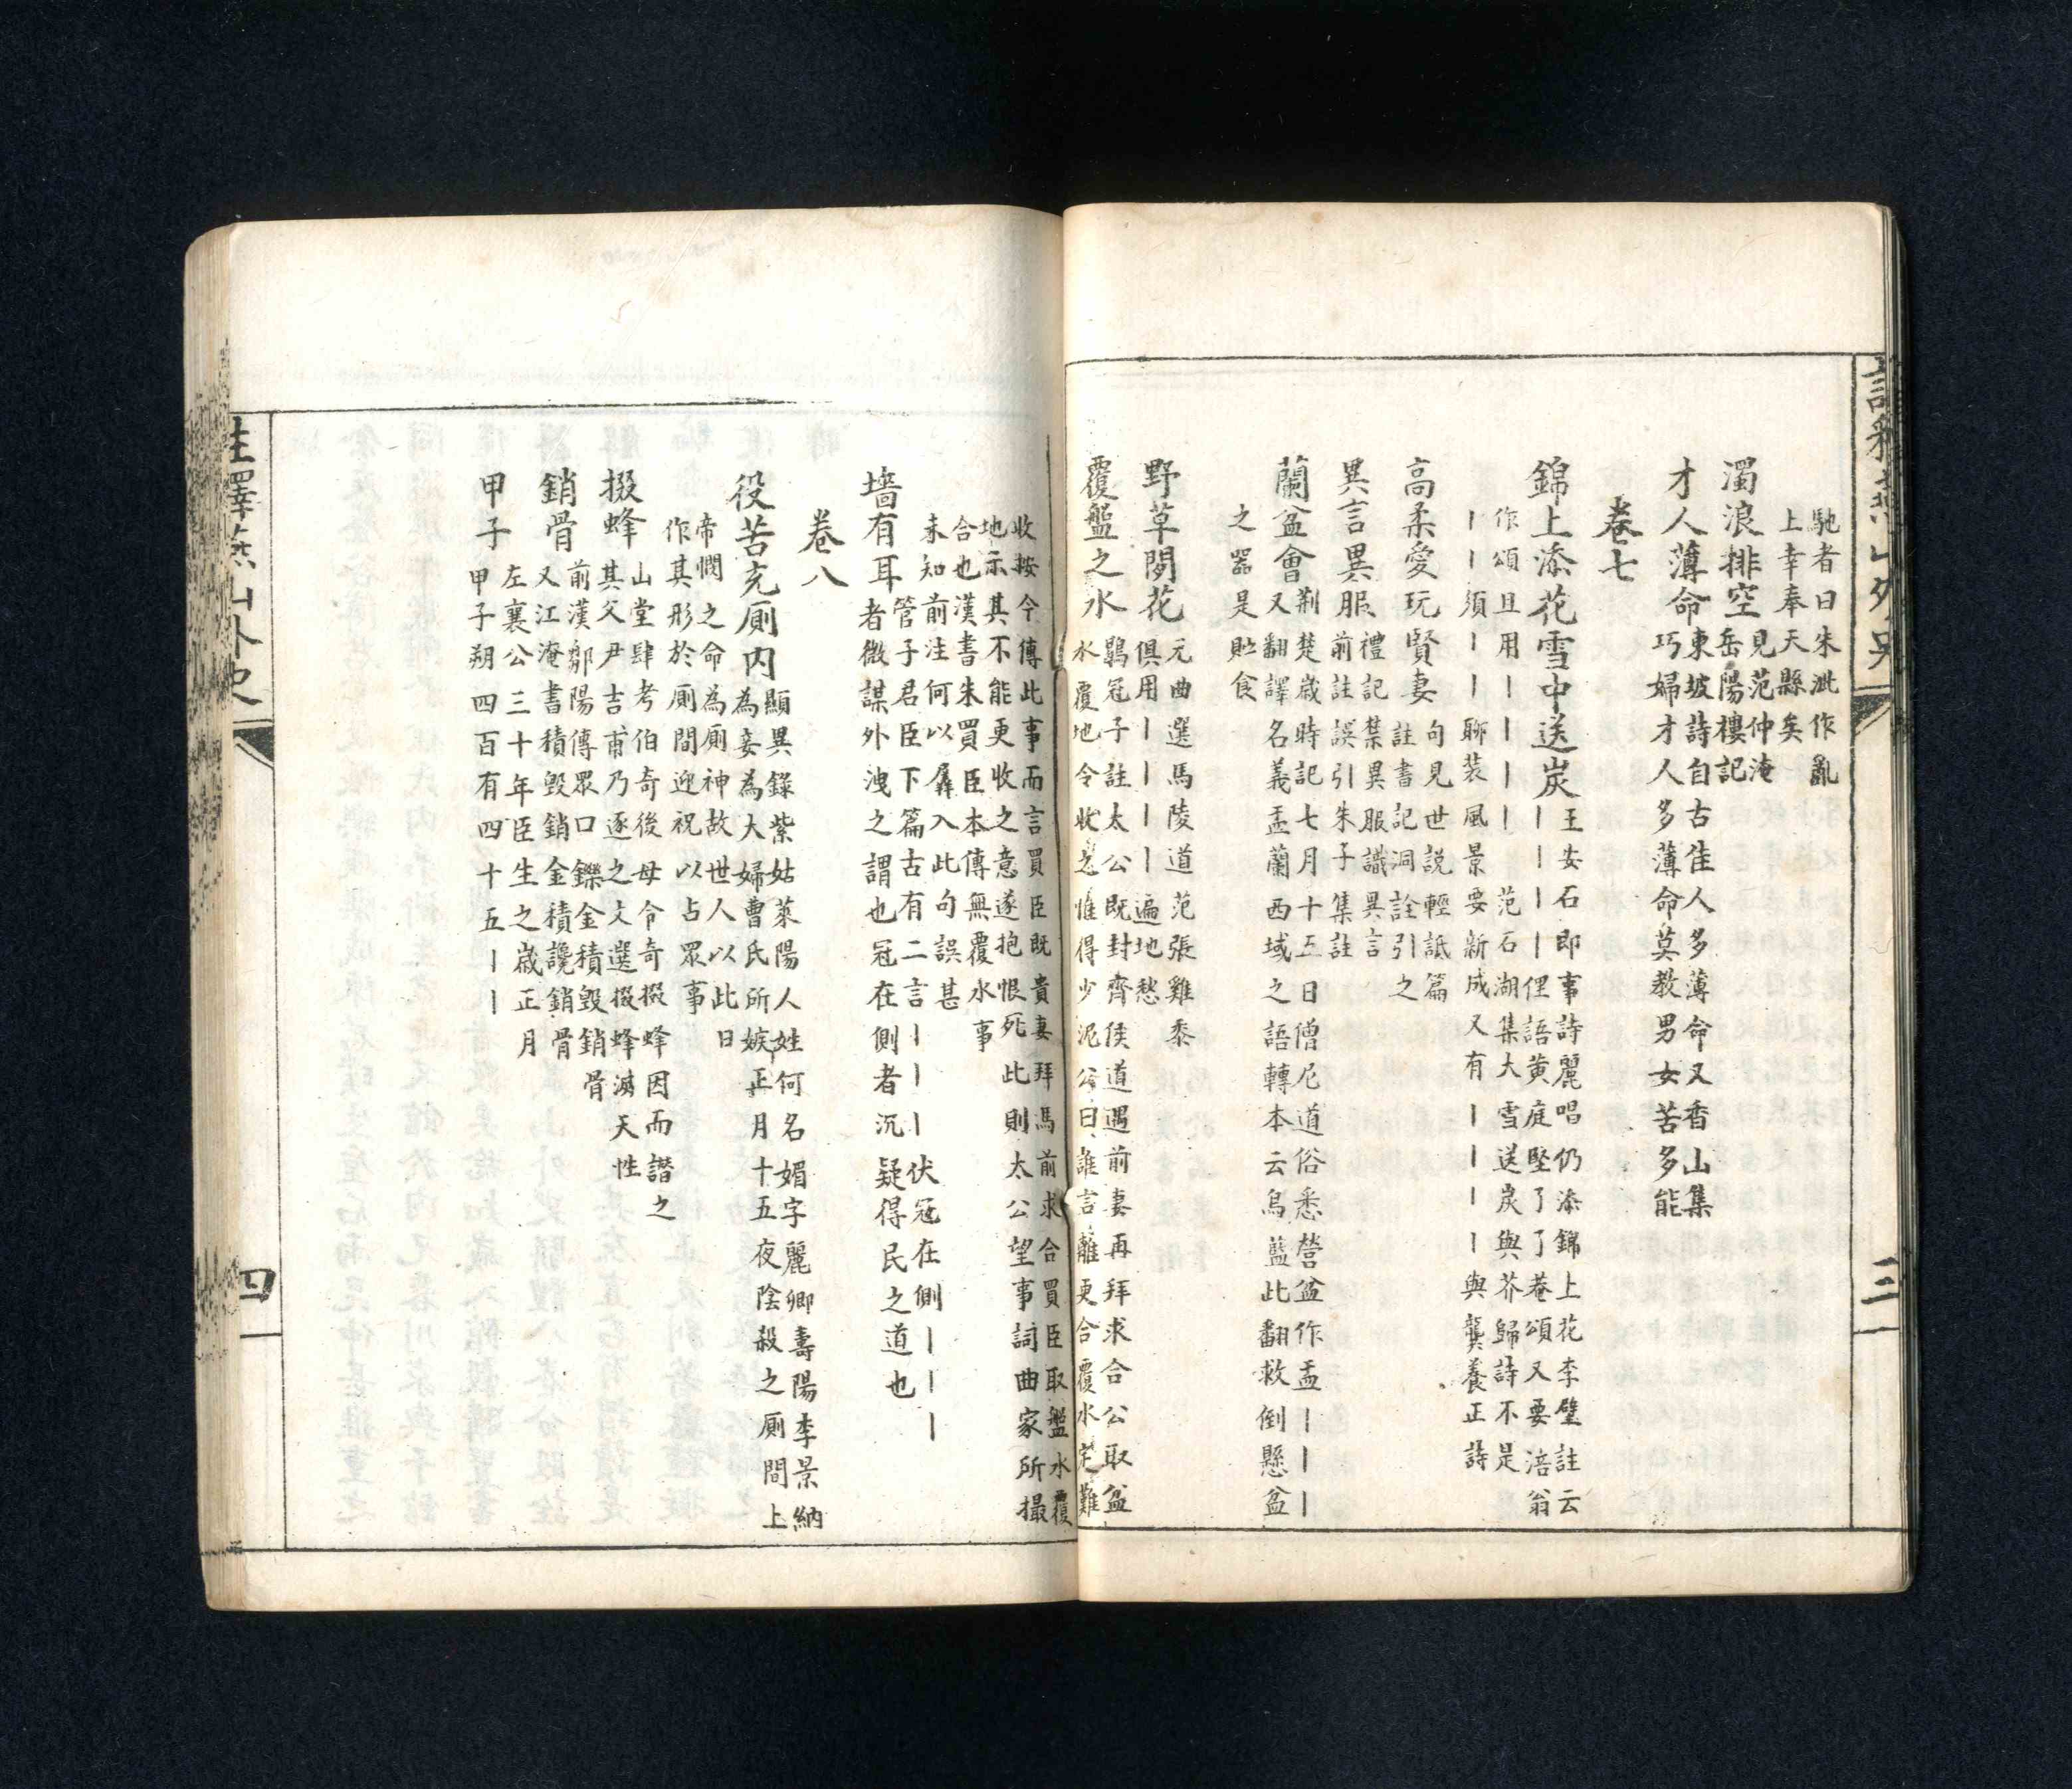 註釋燕山外史
三
馳者曰朱泚作亂
上幸奉天縣矣
濁浪排空
見范仲淹
岳陽樓記
才人薄命
東坡詩自古佳人多薄命又香山集
巧婦才人多薄命莫教男女苦多能
卷七
錦上添花雪中送炭
王安石即事詩麗唱仍添錦上花李壁註云
丨丨丨丨俚語黃庭堅了了菴頌又要涪翁
作頌且用丨丨丨丨范石湖集大雪送炭與芥歸詩不是
丨丨須丨丨聊裝風景要新成又有丨丨丨丨與龔養正詩
高柔愛玩賢妻
句見世説輕詆篇
註書記洞詮引之
異言異服
禮記禁異服識異言
前註誤引朱子集註
蘭盆會
荆楚歲時記七月十五日僧尼道俗悉營盆作盂丨丨丨
又翻譯名義盂蘭西域之語轉本云烏藍此翻救倒懸盆
之器是貯食
野草閒花
元曲選馬陵道范張雞黍
俱用丨丨丨丨遍地愁
覆盤之水
鶡冠子註太公既封齊侯道遇前妻再拜求合公取盆
水覆地令收之惟得少泥公曰誰言離更合覆水定難
收按今傳此事而言買臣既貴妻拜馬前求合買臣取盤水覆
地示其不能更收之意遂抱恨死此則太公望事詞曲家所撮
合也漢書朱買臣本傳無覆水事
未知前注何以羼入此句誤甚
墻有耳
管子君臣下篇古有二言丨丨丨伏冦在側丨丨丨
者微謀外洩之謂也冦在側者沉疑得民之道也
卷八
役苦充厠内
顯異錄紫姑萊陽人姓何名媚字麗卿壽陽李景納
為妾為大婦曹氏所嫉正月十五夜陰殺之厠間上
帝憫之命為厠神故世人以此日
作其形於厠間迎祝以占眾事
掇蜂
山堂肆考伯奇後母令奇掇蜂因而譖之
其父尹吉甫乃逐之文選掇蜂滅天性
銷骨
前漢鄒陽傳眾口鑠金積毀銷骨
又江淹書積毀銷金積讒銷骨
甲子
左襄公三十年臣生之歲正月
甲子朔四百有四十五丨丨
註釋燕山外史
四